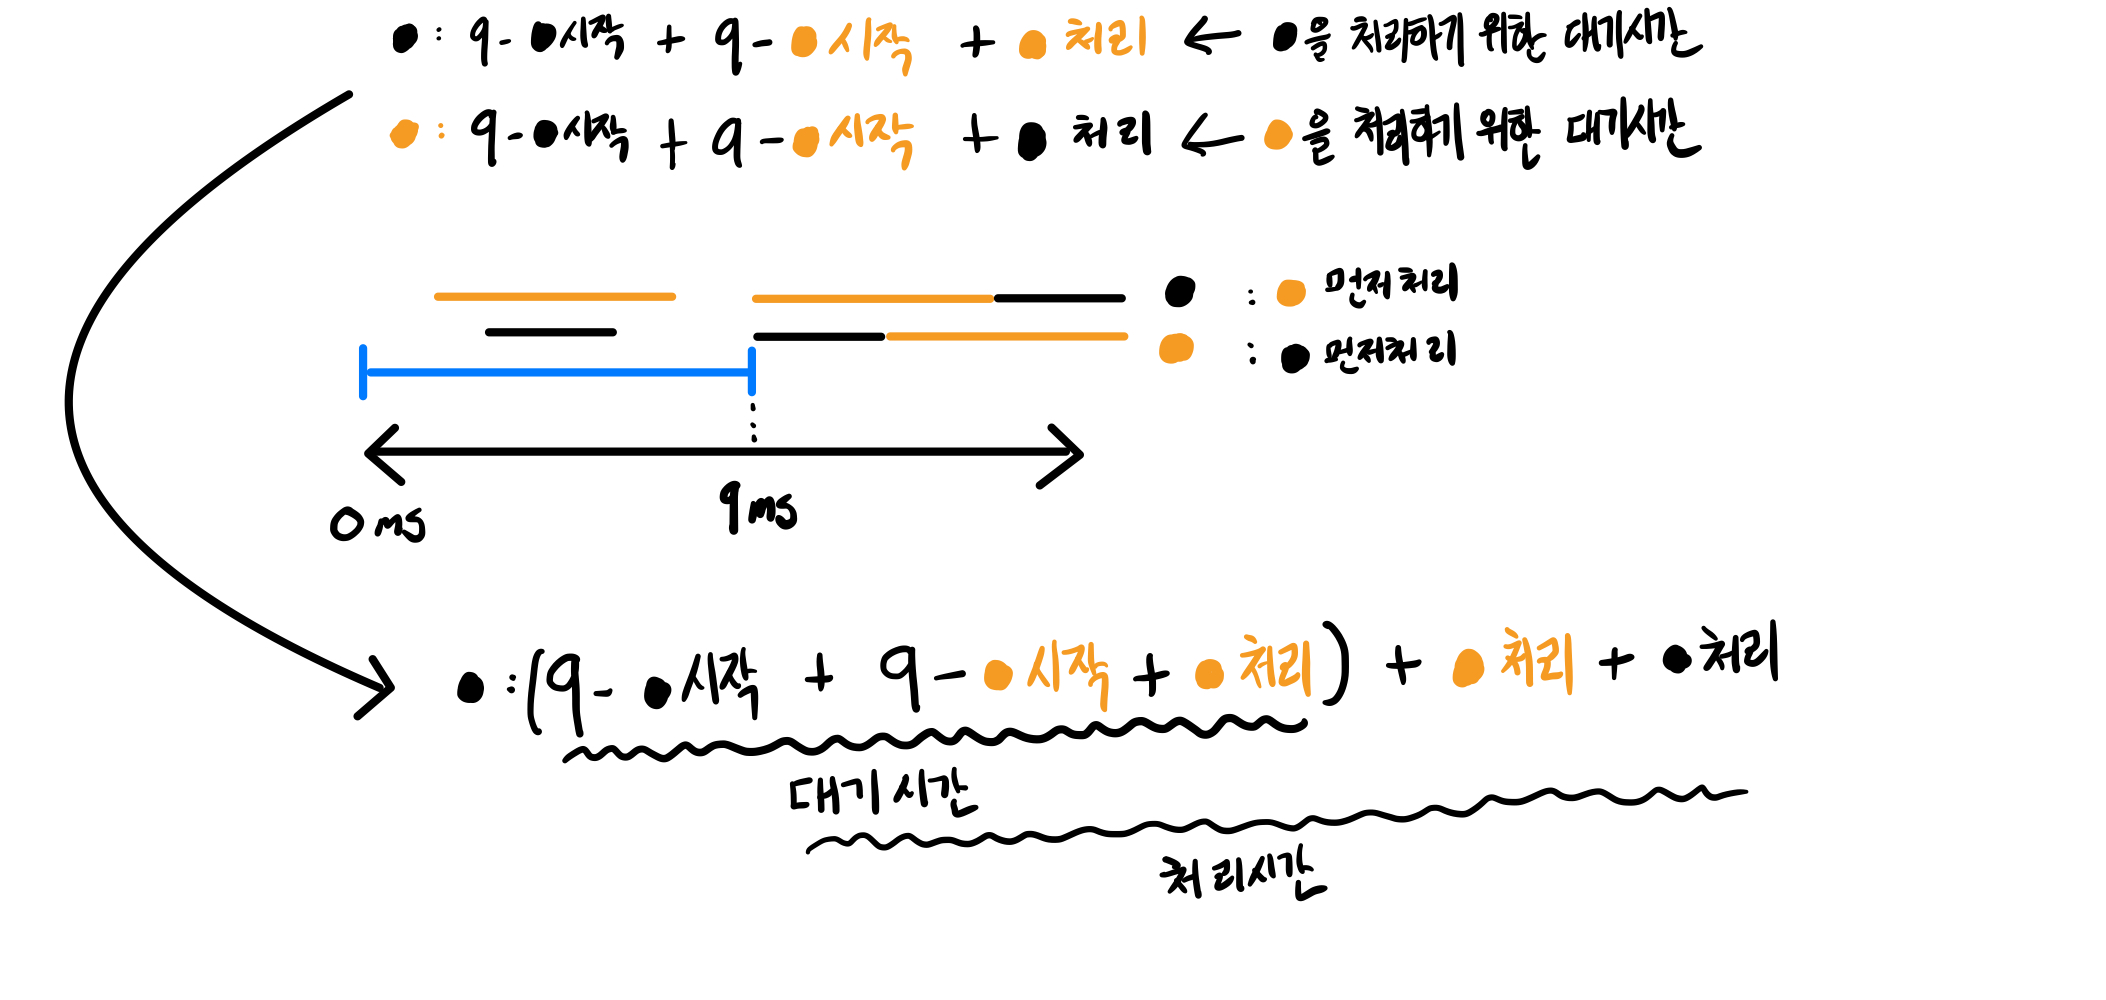 ●: 9-●시작 + 9-●시작 + ●처리 ← ●을 처리하기 위한 대기시간
●: 9-●시작 + 9-●시작 + ● 처리 ← ●을 처리하기 위한 대기시간
● : ● 먼저처리
● : ● 먼저처리
0ms
9ms
● : (9-●시작 + 9-●시작 + ●처리) + ●처리 + ●처리
대기시간
처리시간